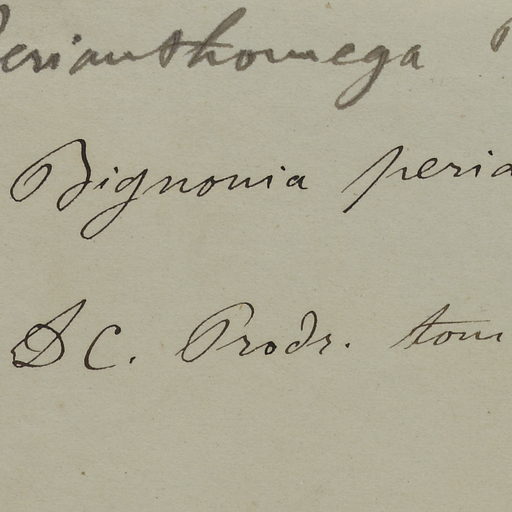 Perianthomega
Bignonia peria
DC. Prodr. tom